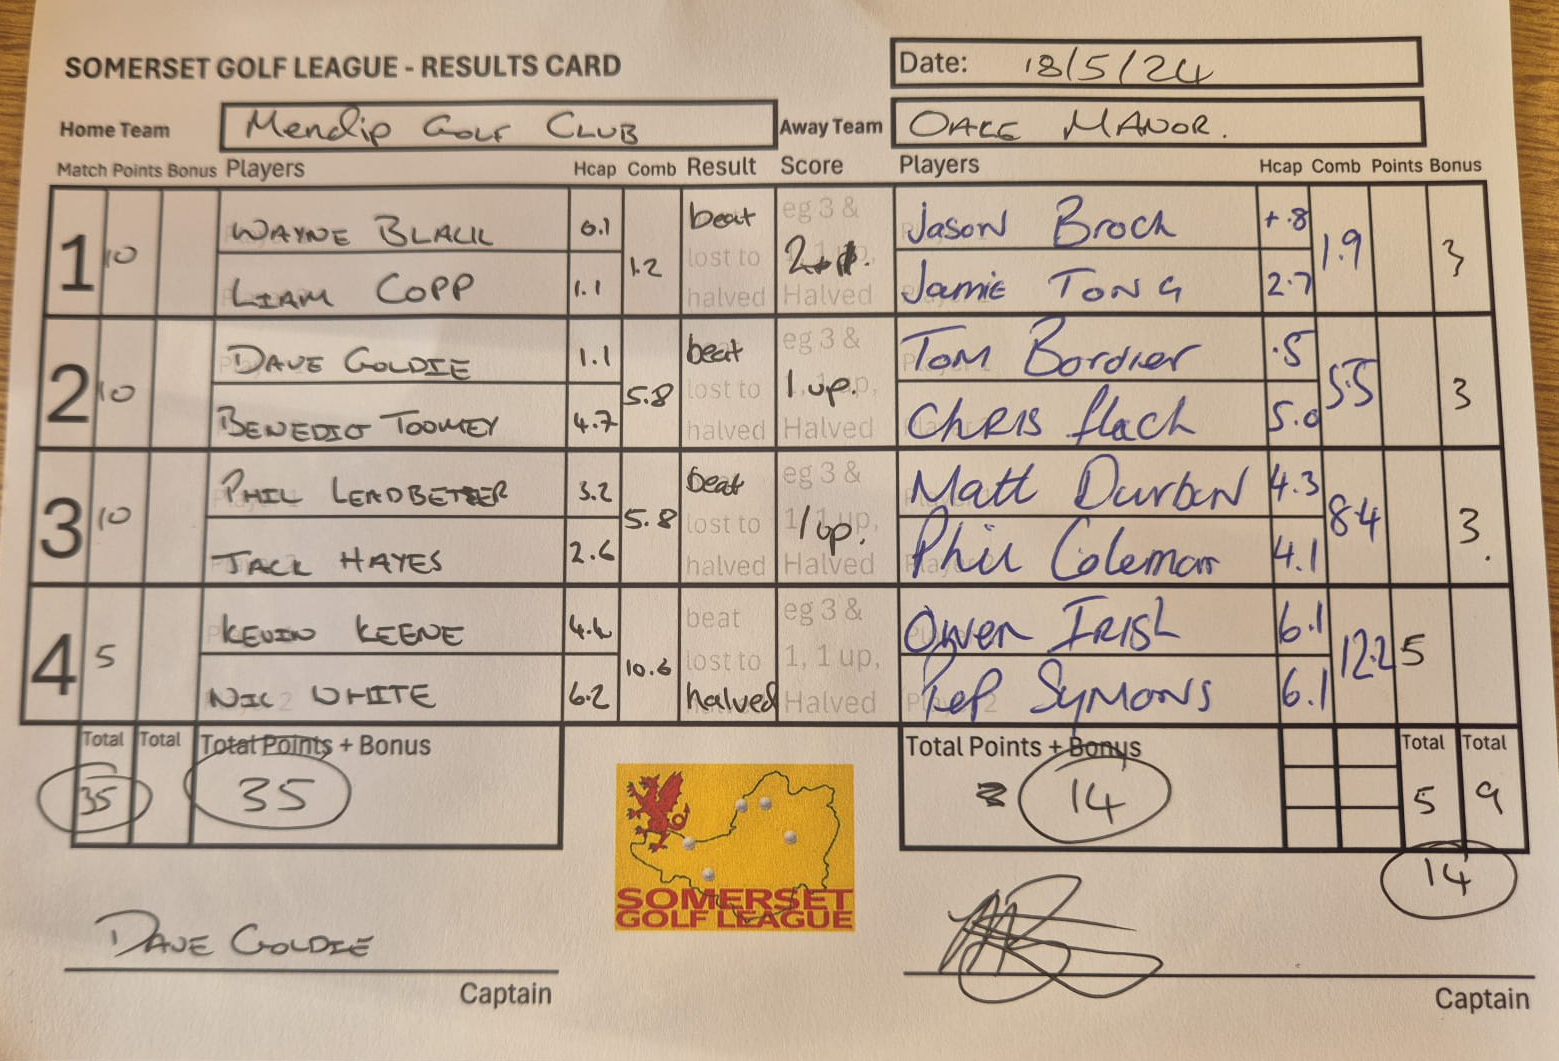 SOMERSET GOLF LEAGUE - RESULTS CARD
Date: 18/5/24
Home Team Mendip Golf CLUB Away Team OAKE MANOR.
Match Points Bonus Players Hcap Comb Result Score Players Hcap Comb Points Bonus
1 10 WAYNE BLACK 0.1 1.2 beat eg 3 & Jason Broch +.8 1.9 3
lost to 2
LIAM COPP 1.1 halved Halved Jamie TONG 2.7
2 10 DAVE GOLDIE 1.1 5.8 beat eg 3 & Tom Bordner .5 5.5 3
lost to 1 up.
BENEDICT TOOMEY 4.7 halved Halved CHRIS flach 5.0
3 10 PHIL LEADBETTER 3.2 5.8 beat eg 3 & Matt Durbin 4.3 8.4 3.
lost to 1 up.
JACK HAYES 2.6 halved Halved Phil Coleman 4.1
4 5 KEVIN KEENE 4.4 10.6 beat eg 3 & Owen IRISH 6.1 12.2 5
lost to 1, 1 up,
NIC WHITE 6.2 halved Halved SYMONS 6.1
Total Total Total Points + Bonus Total Points + Bonus Total Total
35 35 14 5 9
14
SOMERSET
GOLF LEAGUE
DAVE GOLDIE
Captain Captain